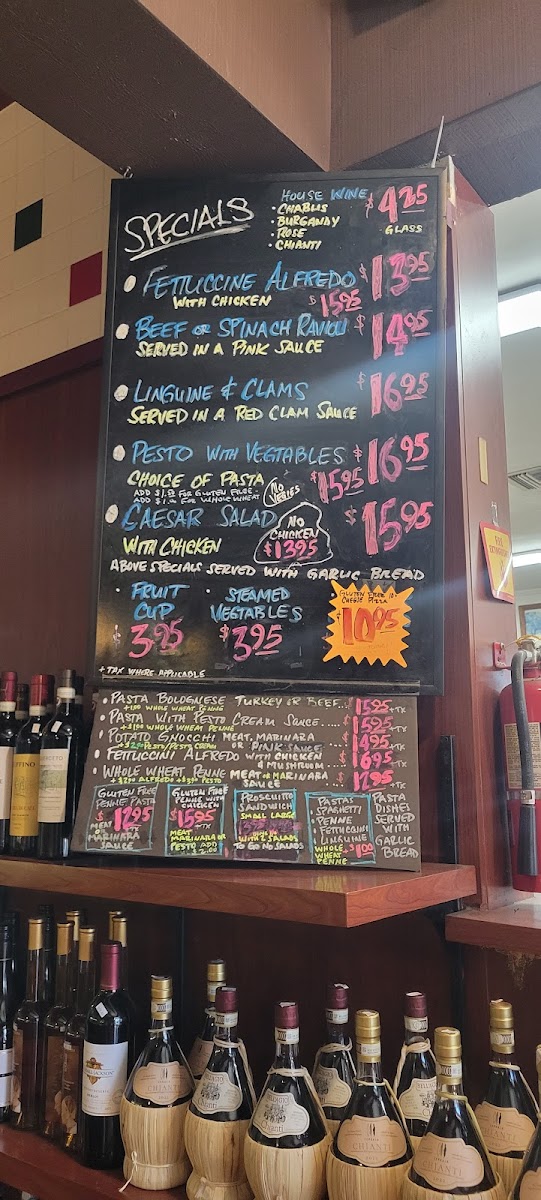 SPECIALS
HOUSE WINE $4.25
• CHABLIS
• BURGANDY
• ROSE
• CHIANTI
GLASS
• FETTUCCINE ALFREDO $13.95
WITH CHICKEN $15.95
• BEEF OR SPINACH RAVIOLI $14.95
SERVED IN A PINK SAUCE
• LINGUINE & CLAMS $16.95
SERVED IN A RED CLAM SAUCE
• PESTO WITH VEGTABLES $16.95
CHOICE OF PASTA NO VEGIES $15.95
ADD $1.00 FOR GLUTEN FREE
ADD $1.00 FOR WHOLE WHEAT
• CAESAR SALAD $15.95
WITH CHICKEN
NO CHICKEN $13.95
ABOVE SPECIALS SERVED WITH GARLIC BREAD
• FRUIT CUP $3.95
• STEAMED VEGTABLES $3.95
GLUTEN FREE 10"
CHEESE PIZZA
$10.95
+ TAX WHERE APPLICABLE
• PASTA BOLOGNESE TURKEY OR BEEF... $15.95 +TX
+$1.00 WHOLE WHEAT PENNE
• PASTA WITH PESTO CREAM SAUCE..... $15.95 +TX
+$1.00 WHOLE WHEAT PENNE
• POTATO GNOCCHI MEAT, MARINARA OR PINK SAUCE $14.95 +TX
PESTO/PESTO CREAM
• FETTUCCINI ALFREDO WITH CHICKEN & MUSHROOM $16.95 +TX
• WHOLE WHEAT PENNE MEAT OR MARINARA SAUCE $12.95 +TX
ALFREDO PESTO
GLUTEN FREE
PENNE PASTA
$12.95 +TX
MEAT OR
MARINARA
SAUCE
GLUTEN FREE
PENNE WITH
CHICKEN
$15.95 +TX
MEAT
MARINARA OR
PESTO ADD
$2.00
PROSCUITTO
SANDWICH
SMALL LARGE
WITH SALADS
TO GO NO SALADS
• PASTAS
SPAGHETTI
PENNE
FETTUCCINI
LINGUINE
WHOLE
WHEAT
PENNE $1.00
PASTA
DISHES
SERVED
WITH
GARLIC
BREAD
FIRE
EXTINGUISHER
CHIANTI
CHIANTI
Chianti
CHIANTI
CHIANTI
CHIANTI